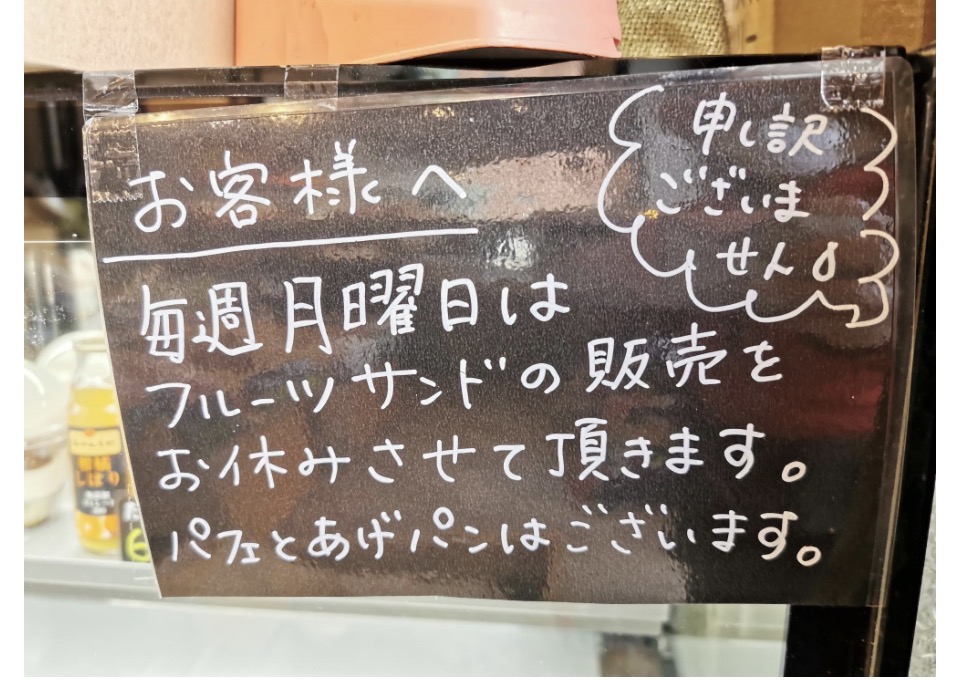 お客様へ
申し訳
ございま
せん
毎週月曜日は
フルーツサンドの販売を
お休みさせて頂きます。
パフェとあげパンはございます。
しぼり